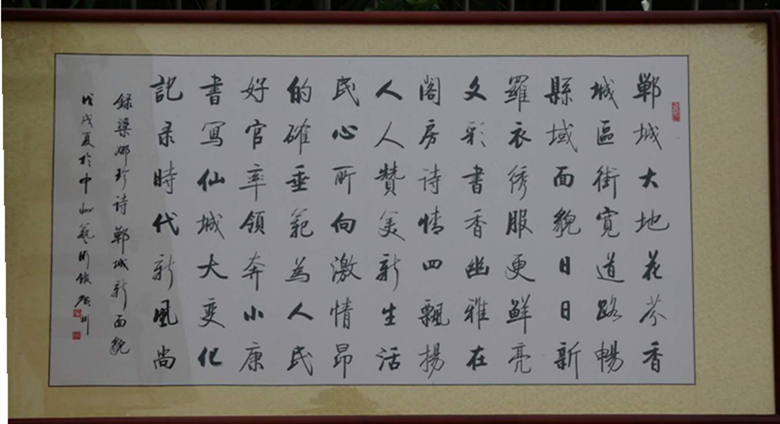 鄲城大地花芬香
城區街寬道路暢
縣域面貌日日新
羅衣綉服更鮮亮
文彩書香幽雅在
閣房诗情四飄揚
人人贊美新生活
民心所向激情昂
的確垂範為人民
好官率領奔小康
書寫仙城大变化
記录時代新風尚
録梁娜珍诗鄲城新面貌
戊戌夏於中州藝術館